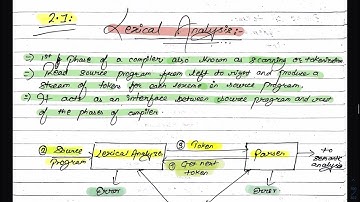 2.1:
Lexical Analysis:-
=) 1st phase of a compiler also known as scanning or tokenization
=) Read source program from left to right and produce a
stream of tokens for each lexeme in source program.
=) It acts as an interface between source program and rest
of the phases of compiler
① Source Program
Lexical Analyzer
③ Token
② Get next token
Parser
to semantic analysis
Error
Error